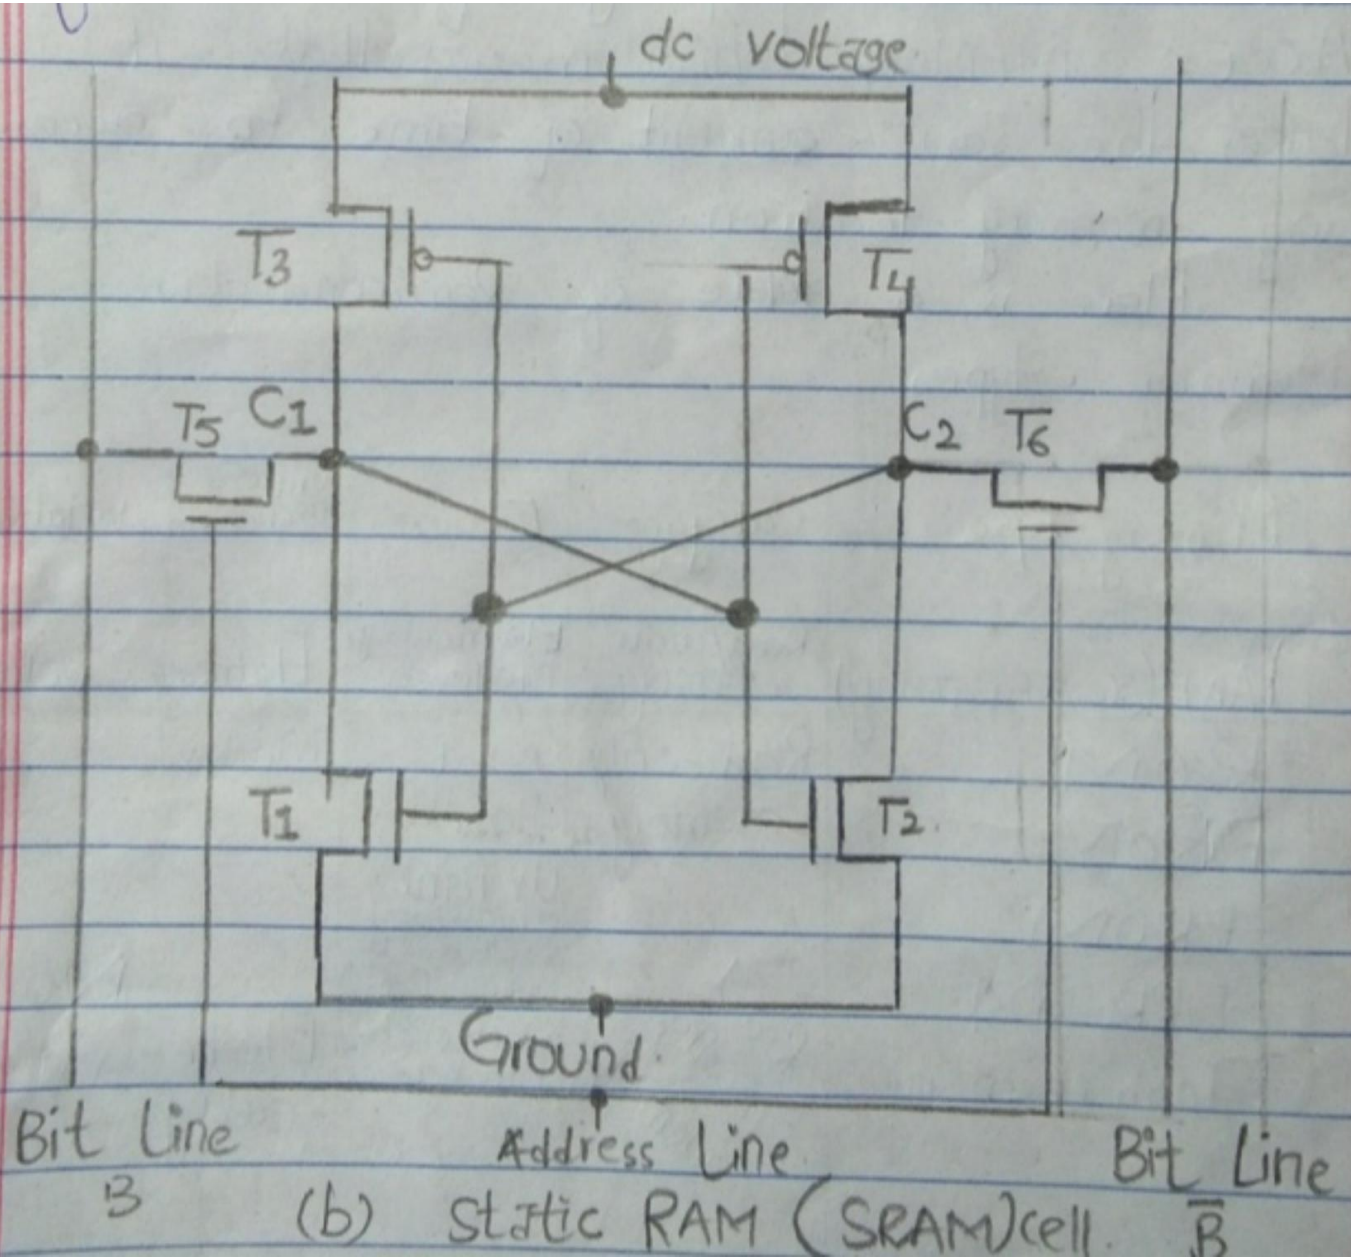 dc voltage
T3
T4
T5 C1
C2 T6
T1
T2.
Ground.
Bit Line Address Line Bit Line
B (b) Static RAM (SRAM)cell. B̅